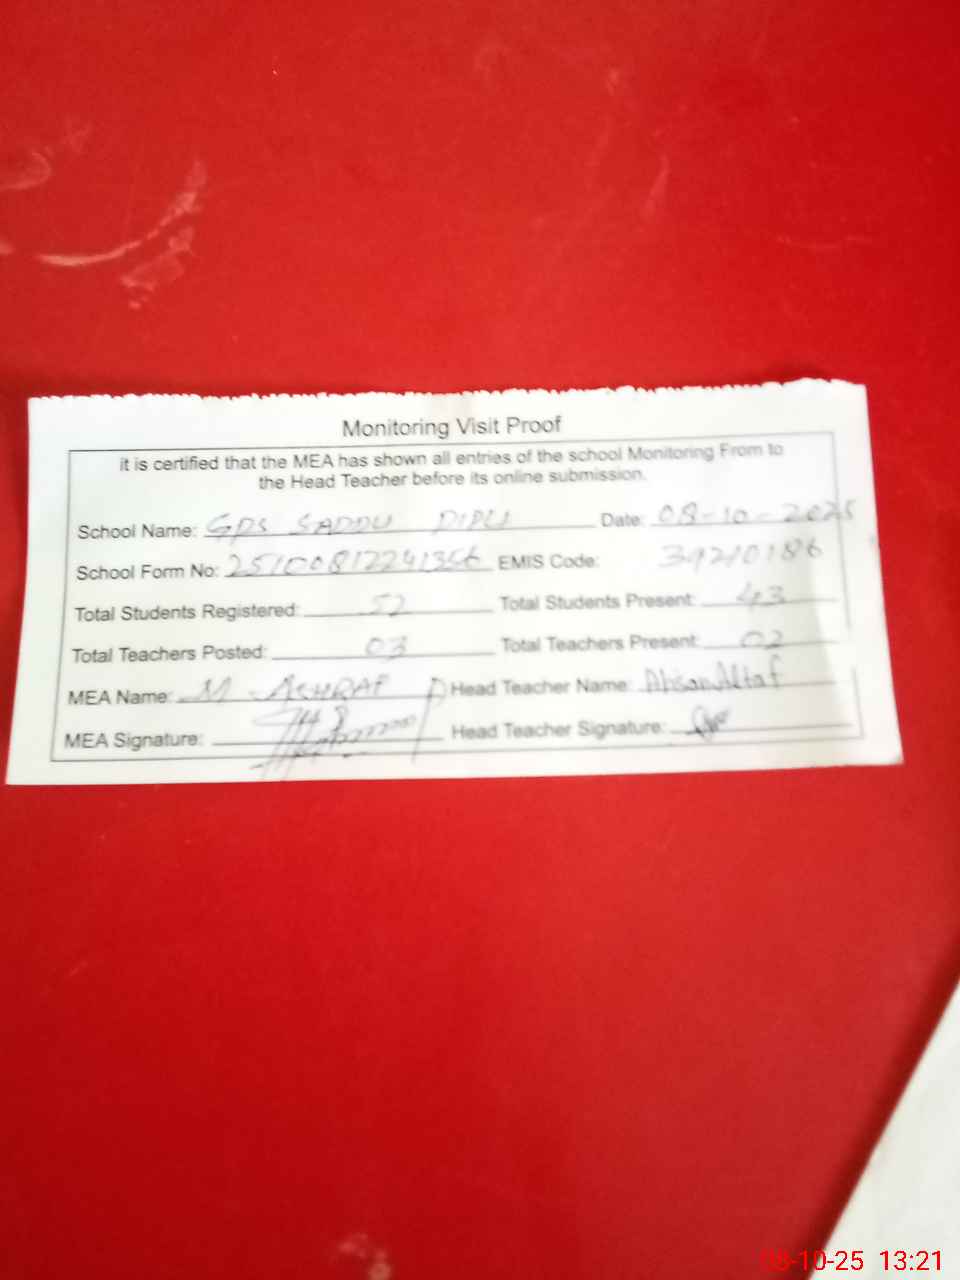 Monitoring Visit Proof
it is certified that the MEA has shown all entries of the school Monitoring From to
the Head Teacher before its online submission.
School Name: GPS SADDU DIPU Date: 08-10-2025
School Form No: 25100812241356 EMIS Code: 39210186
Total Students Registered: 52 Total Students Present: 43
Total Teachers Posted: 03 Total Teachers Present: 02
MEA Name: M ASHRAF Head Teacher Name: Ahsan Altaf
MEA Signature: Head Teacher Signature:
08-10-25 13:21